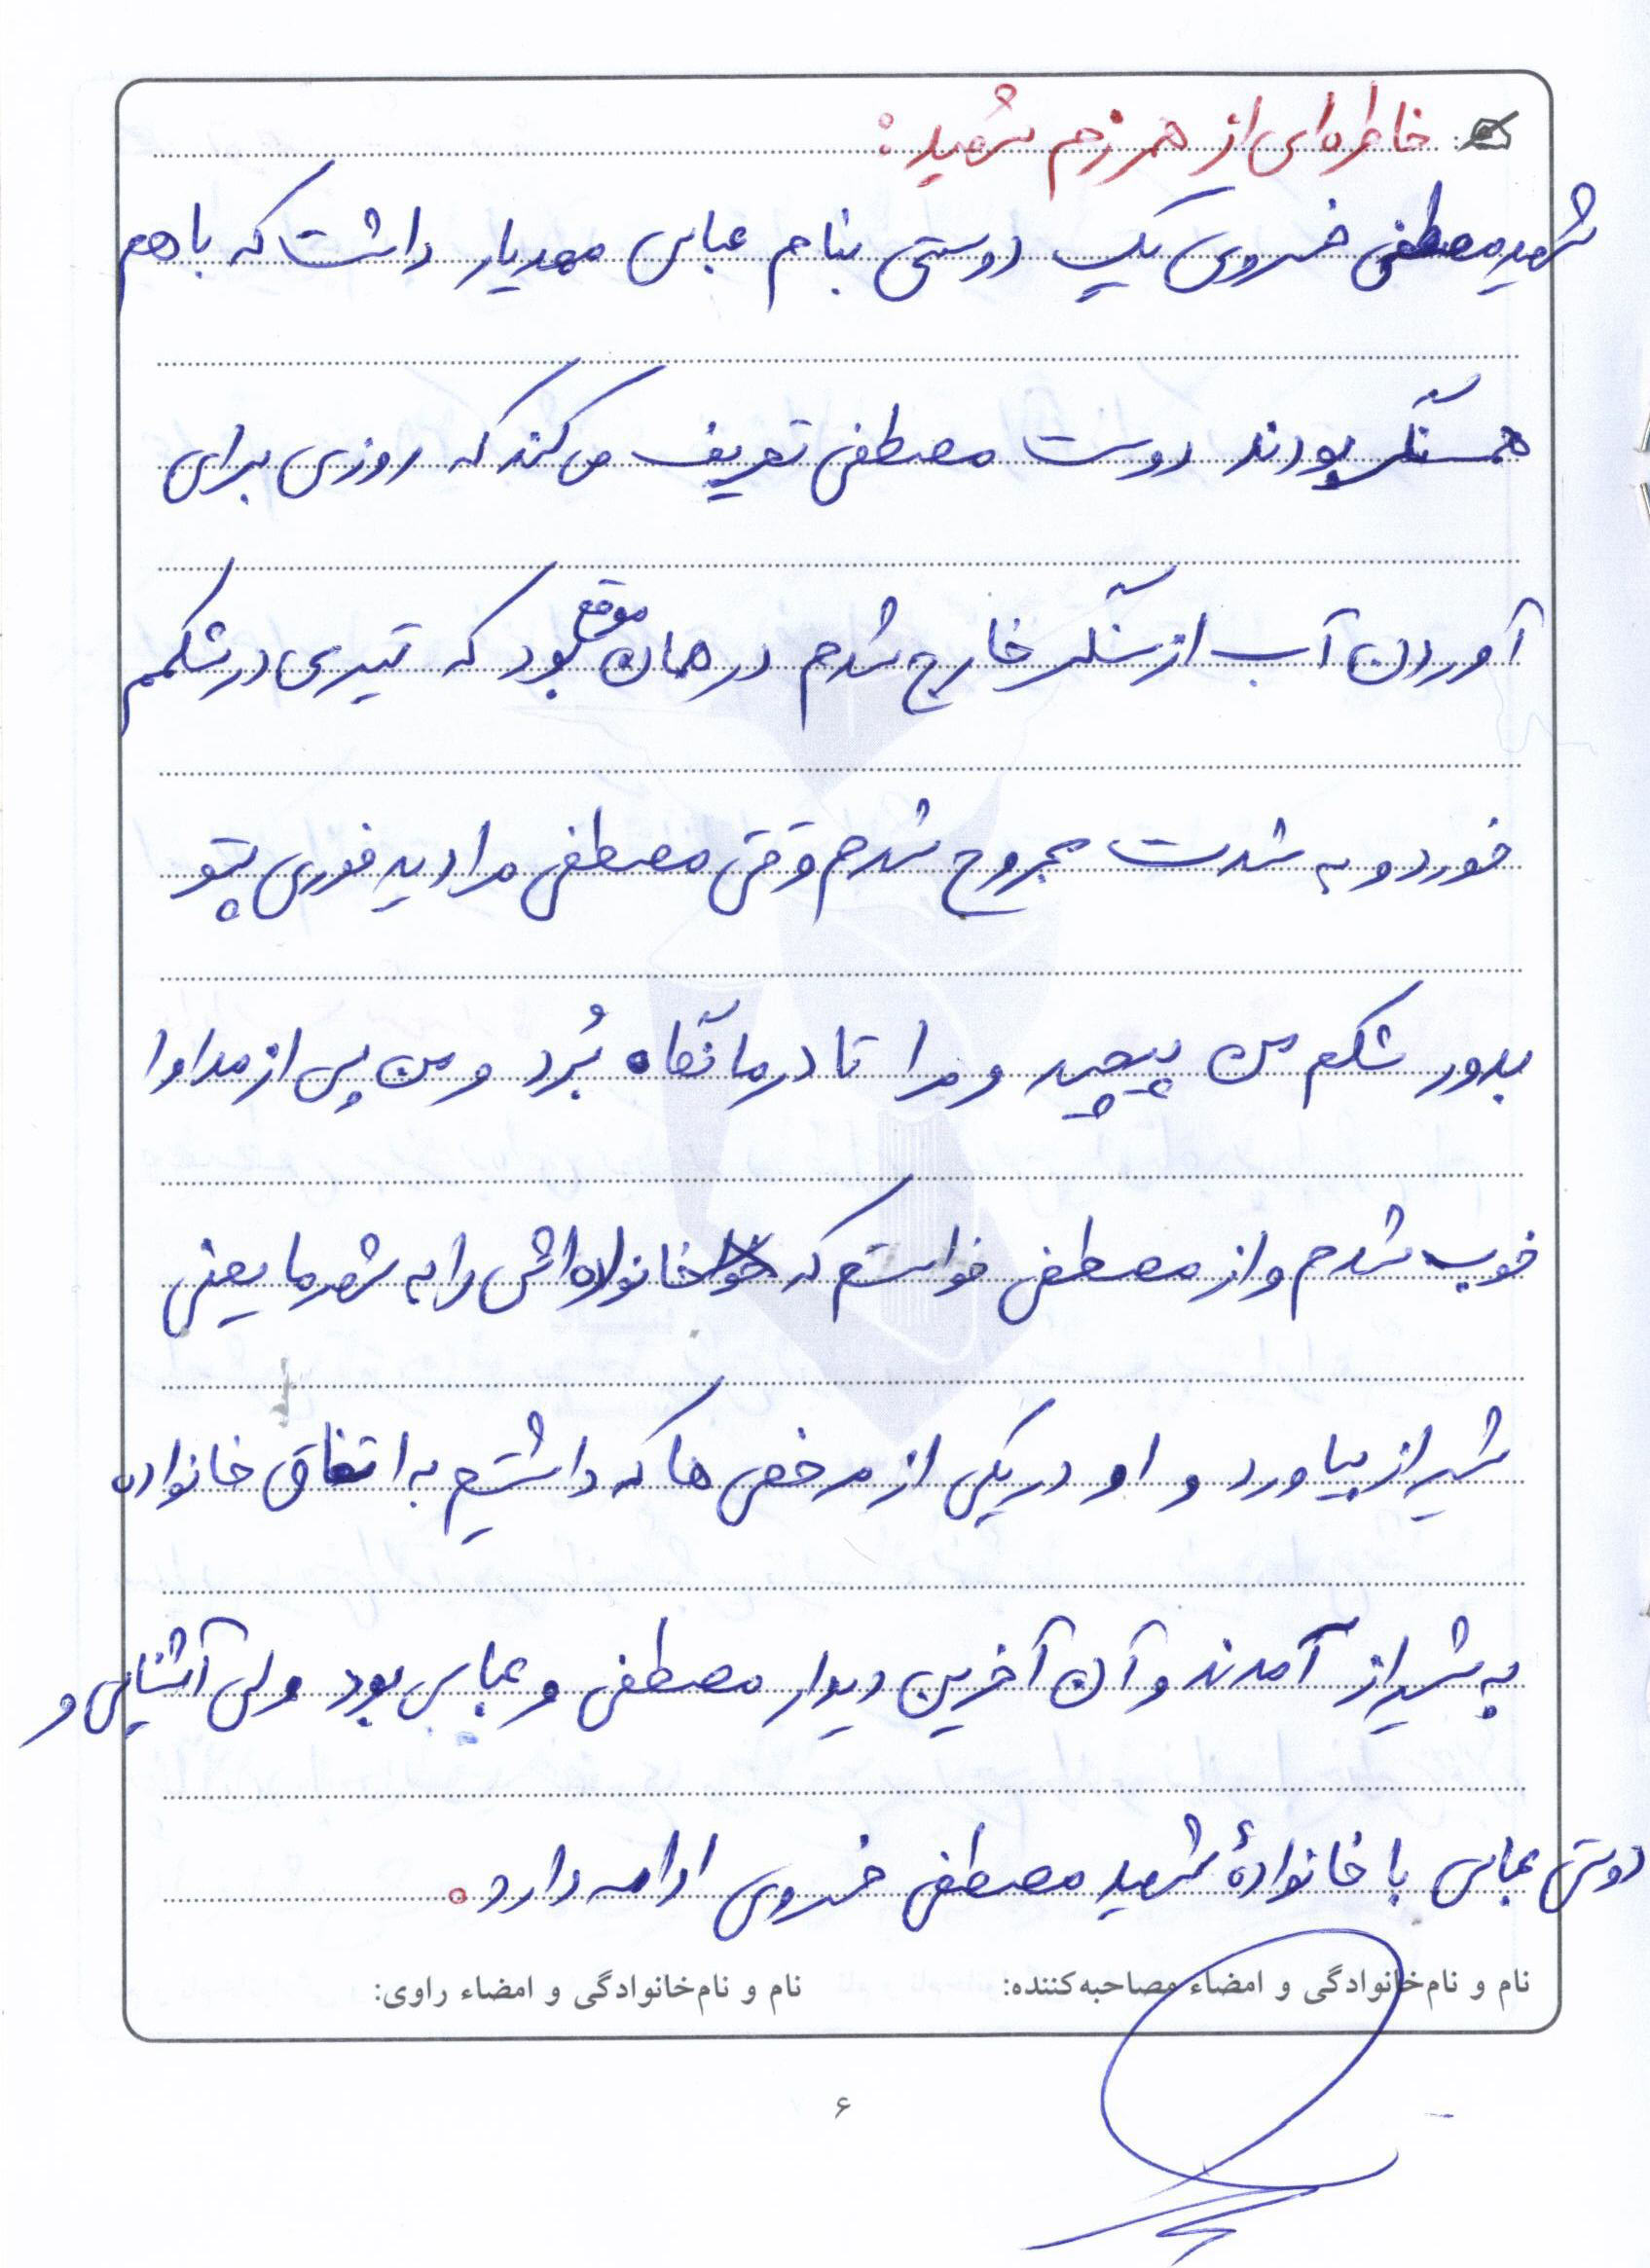 خاطره‌ای از همرزم شهید:
شهید مصطفی خسروی یک دوستی بنام عباس مهدیار داشت که با هم
همسنگر بودند دوست مصطفی تعریف می‌کند که روزی برای
آوردن آب از سنگر خارج شدم در همان موقع بود که تیری در شکمم
خورد و به شدت مجروح شدم وقتی مصطفی مرا دید فوری پتو
بدور شکم من پیچید و مرا تا درمانگاه بُرد و من پس از مداوا
خوب شدم و از مصطفی خواستم که خانواده‌اش را به شهر ما یعنی
شیراز بیاورد و او در یکی از مرخصی ها که داشتیم به اتفاق خانواده
به شیراز آمدند و آن آخرین دیدار مصطفی و عباس بود ولی آشنایی و
دوستی عباس با خانوادهٔ شهید مصطفی خسروی ادامه دارد.
نام و نام‌خانوادگی و امضاء مصاحبه‌کننده: نام و نام‌خانوادگی و امضاء راوی:
۶